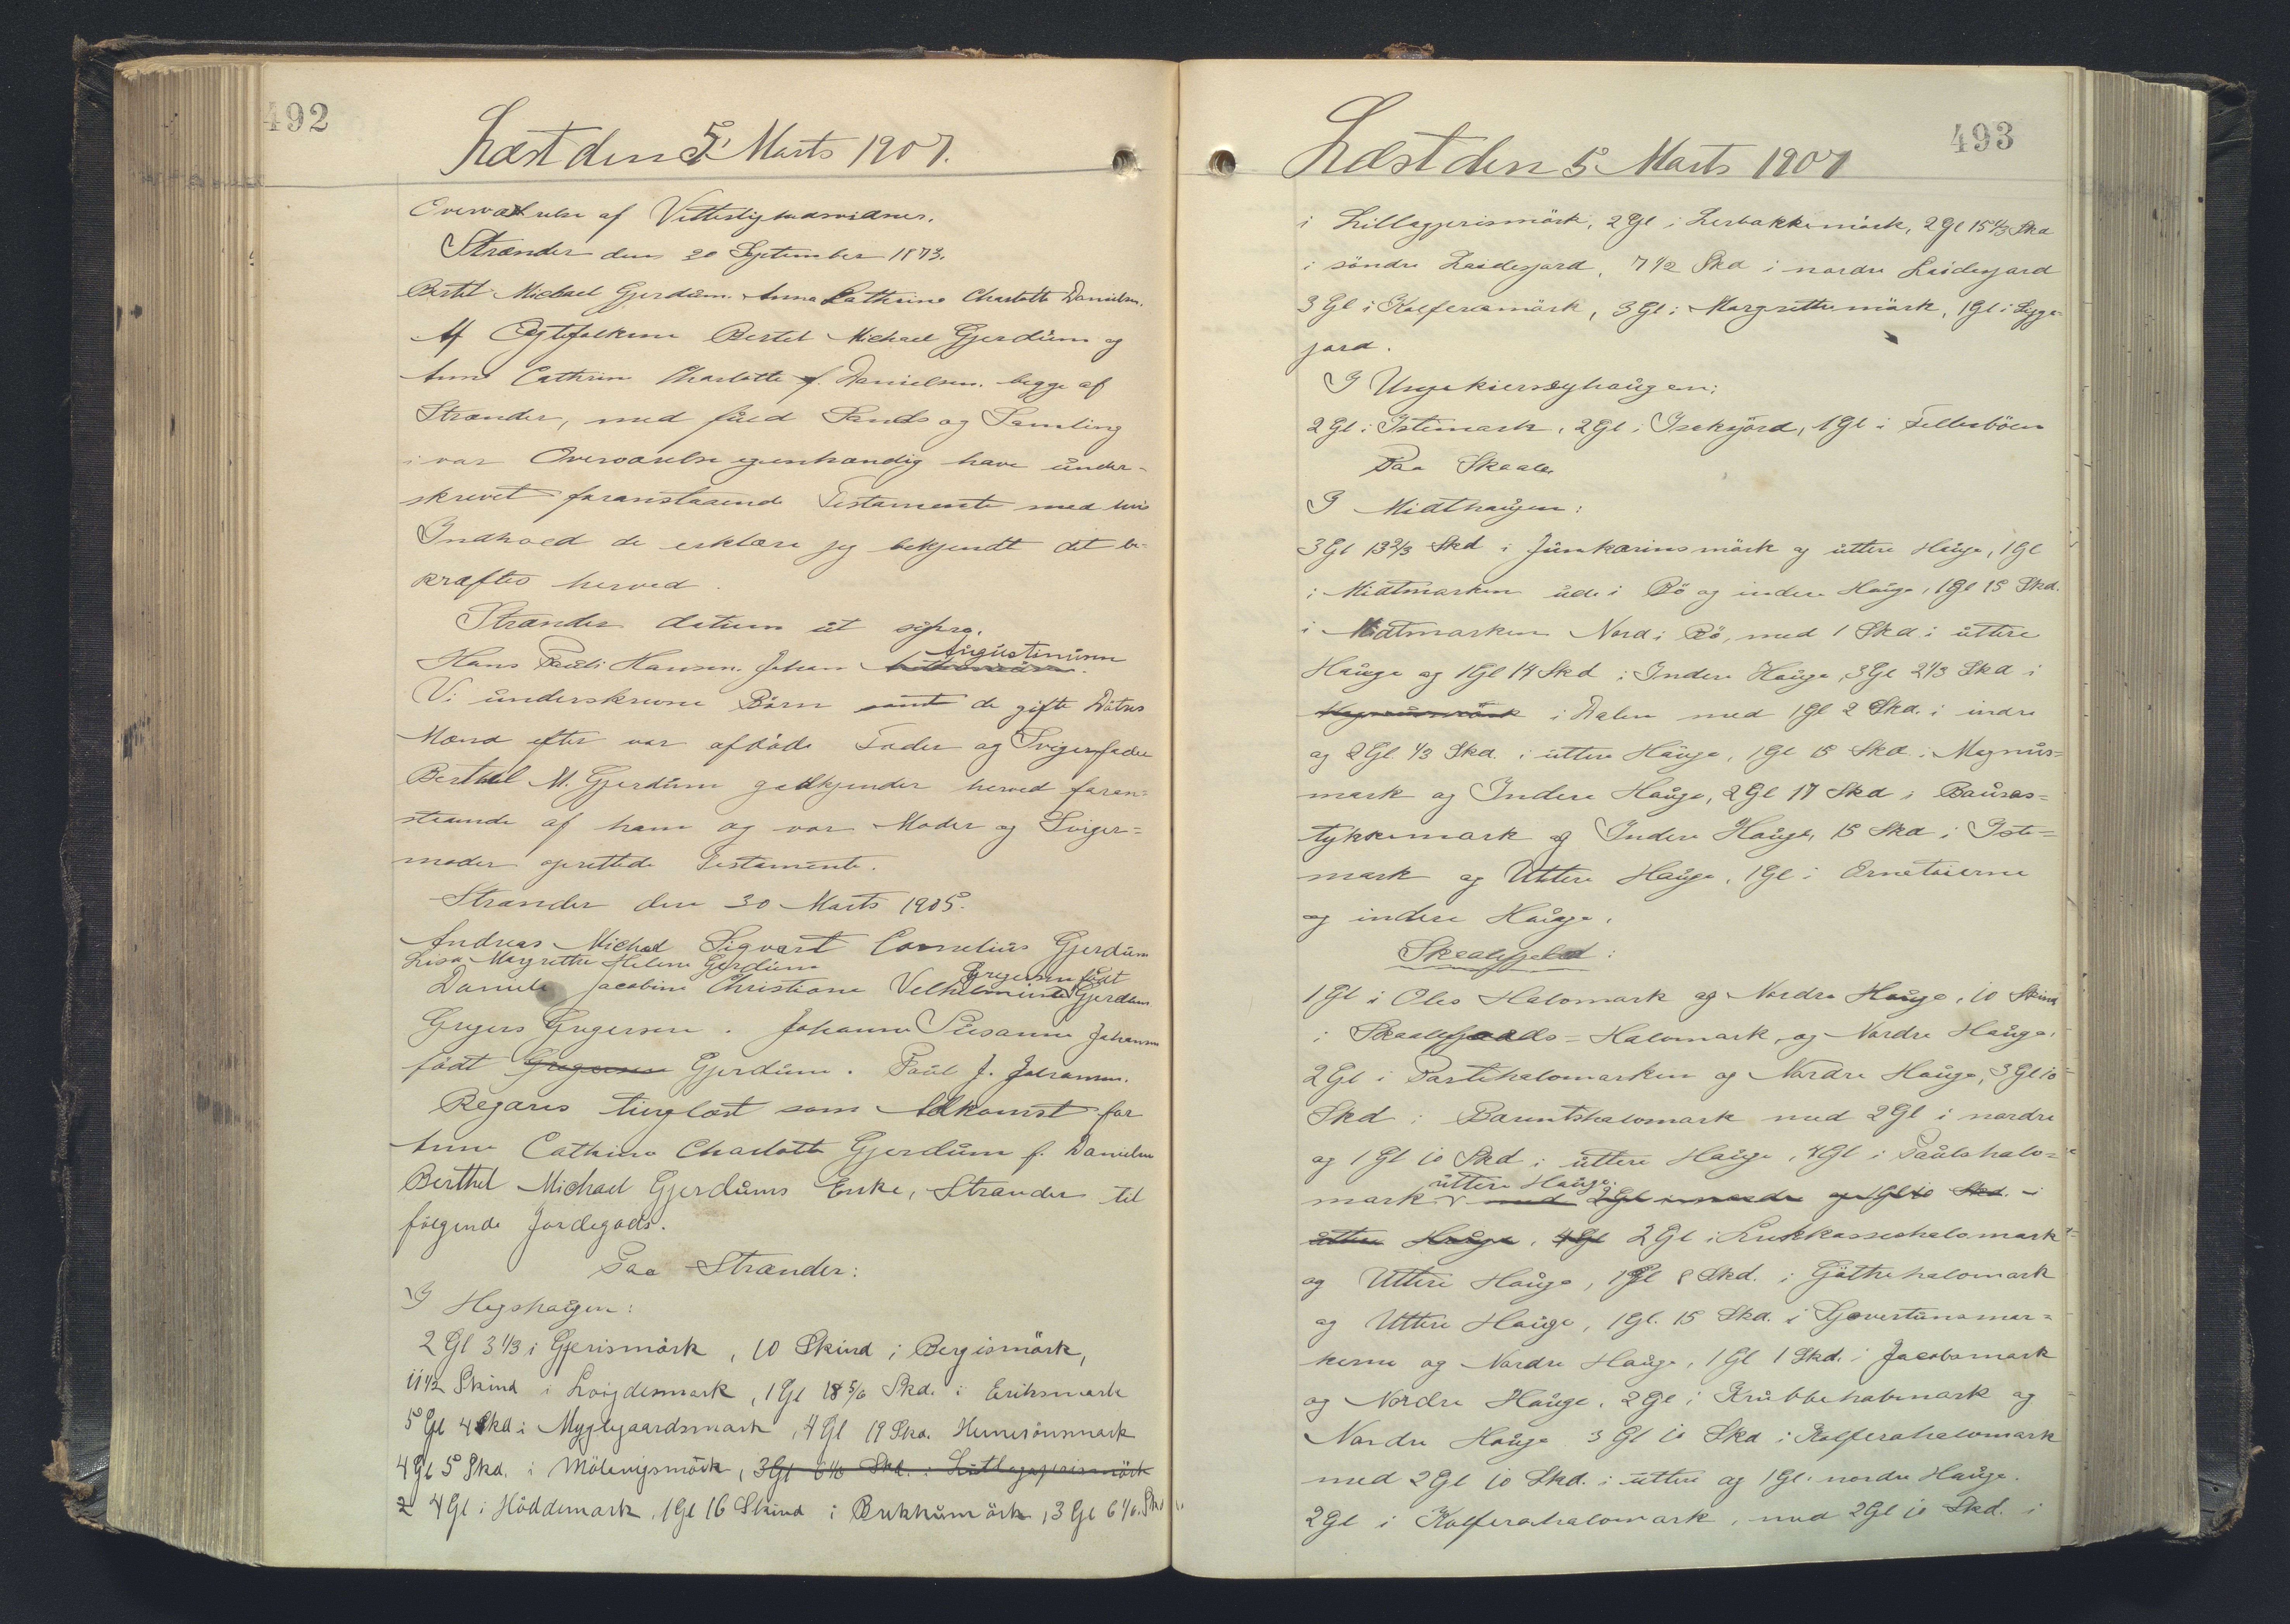 492
Læst den 5' Marts 1907.
Overværelse af Vitterlighedsvidner.
Strænder den 20 September 1873.
Bertel Michael Gjerdüm. Anna Cathrine Charlotte Danielsen.
At Egtefolkene Bertel Michael Gjerdüm og
Anna Cathrine Charlotte f. Danielsen begge af
Strænder, med fuld Sands og Samling
i vor Overværelse egenhændig have under-
skrevet foranstaaende Testamente med hvis
Indhold de erklære sig bekjendt det be-
kræftes herved.
Strænder datum ut supra.
Hans Pauli Hansen. Johan Augustinüssen
Vi underskrevne Börn samt de gifte Dötres
Mænd efter vor afdöde Fader og Svigerfader
Berthel M. Gjerdüm godkjender herved foran-
staaende af ham og vor Moder og Sviger=
moder oprettede Testamente.
Strænder den 30 Marts 1905.
Andreas Michael Sigvart Cornelius Gjerdüm
Lisa Margrethe Helene Gjerdüm
Daniele Jacobine Christiane Velhelmine Gregersen födt Gjerdüm
Greyers Gregersen. Johanne Süsanne Johansen
födt Gregersen Gjerdüm. Paul J. Johansen.
Regares tinglæst som Adkomst for
Anna Cathrine Charlotte Gjerdüm f. Danielsen
Berthel Michael Gjerdüms Enke, Strænder til
fölgende Jordegods.
Paa Strænder:
I Hegshaugen:
2 Gl 3 1/3 i Gjerismörk, 10 Skind i Bergismörk,
11 1/2 Skind i Loigdesmark, 1 Gl 18 5/6 Skd. i Eriksmark
5 Gl 4 Skd i Myglegaardsmark, 4 Gl 19 Skd. Hunerönsmark
4 Gl 5 Skd. i Mölengsmörk, 3 Gl 6 1/6 Skd. i Lutlagjerismörk
2 4 Gl i Höddemark, 1 Gl 16 Skind i Brekkumörk, 3 Gl 6 1/6. Skd
493
Læst den 5 Marts 1907
i Lillagjerismörk, 2 Gl i Lerbakkemörk, 2 Gl 15 1/3 Skd
i söndre Laidesjord, 7 1/2 Skd i nordre Laidesjord
3 Gl i Kalferamörk, 3 Gl i Margrethemörk, 1 Gl i Ligge-
jord.
I Ungakierseyhaugen:
2 Gl i Istemark, 2 Gl i Isaksjörd, 1 Gl i Fellesböen
Paa Skaale
I Midthaugen:
3 Gl 13 2/3 Skd i Junkarinsmörk og üttere Hauge, 1 Gl
i Midtmarken ude i Bö og indere Hauge, 1 Gl 15 Skd.
i Midtmarken Nord i Bö, med 1 Skd i üttere
Hauge og 1 Gl 14 Skd i Indere Hauge, 3 Gl 2 1/3 Skd i
Magnüsmörk i Dalen med 1 Gl 2 Skd. i indre
og 2 Gl 1/3 Skd. i üttere Hauge, 1 Gl 15 Skd i Magnus=
mark og Indere Hauge, 2 Gl 17 Skd i Bauras=
tykkemark og Indere Hauge, 15 Skd i Iste=
mark og Uttere Hauge, 1 Gl i Ernetaierne
og indere Hauge.
Skaalefjeld:
1 Gl i Oles Halomark og Nordre Hauge, 10 Skind
i Skaalefjords=Halomark, og Nordre Hauge,
2 Gl i Partihalomarken og Nordre Hauge, 3 Gl 10
Skd i Barentshalomark med 2 Gl i nordre
og 1 Gl 10 Skd i üttere Hauge, 4 Gl i Paülshalo=
mark v üttere Hauge. med 2 Gl i nordre og 1 Gl 10 Skd. i
üttere Hauge, 4 Gl 2 Gl i Lukkasseshalomark
og Uttere Hauge, 1 Gl 8 Skd. i Göthehalomark
og Uttere Hauge, 1 Gl. 15 Skd. i Govertünsmar=
kerne og Nordre Hauge, 1 Gl 1 Skd. i Jacobsmark
og Nordre Hauge, 2 Gl i Krubbehalomark og
Nordre Hauge 3 Gl 10 Skd i Kalferahalomark
med 2 Gl 10 Skd. i üttere og 1 Gl. nordre Hauge.
2 Gl i Kalferahalomark, med 2 Gl 10 Skd. i